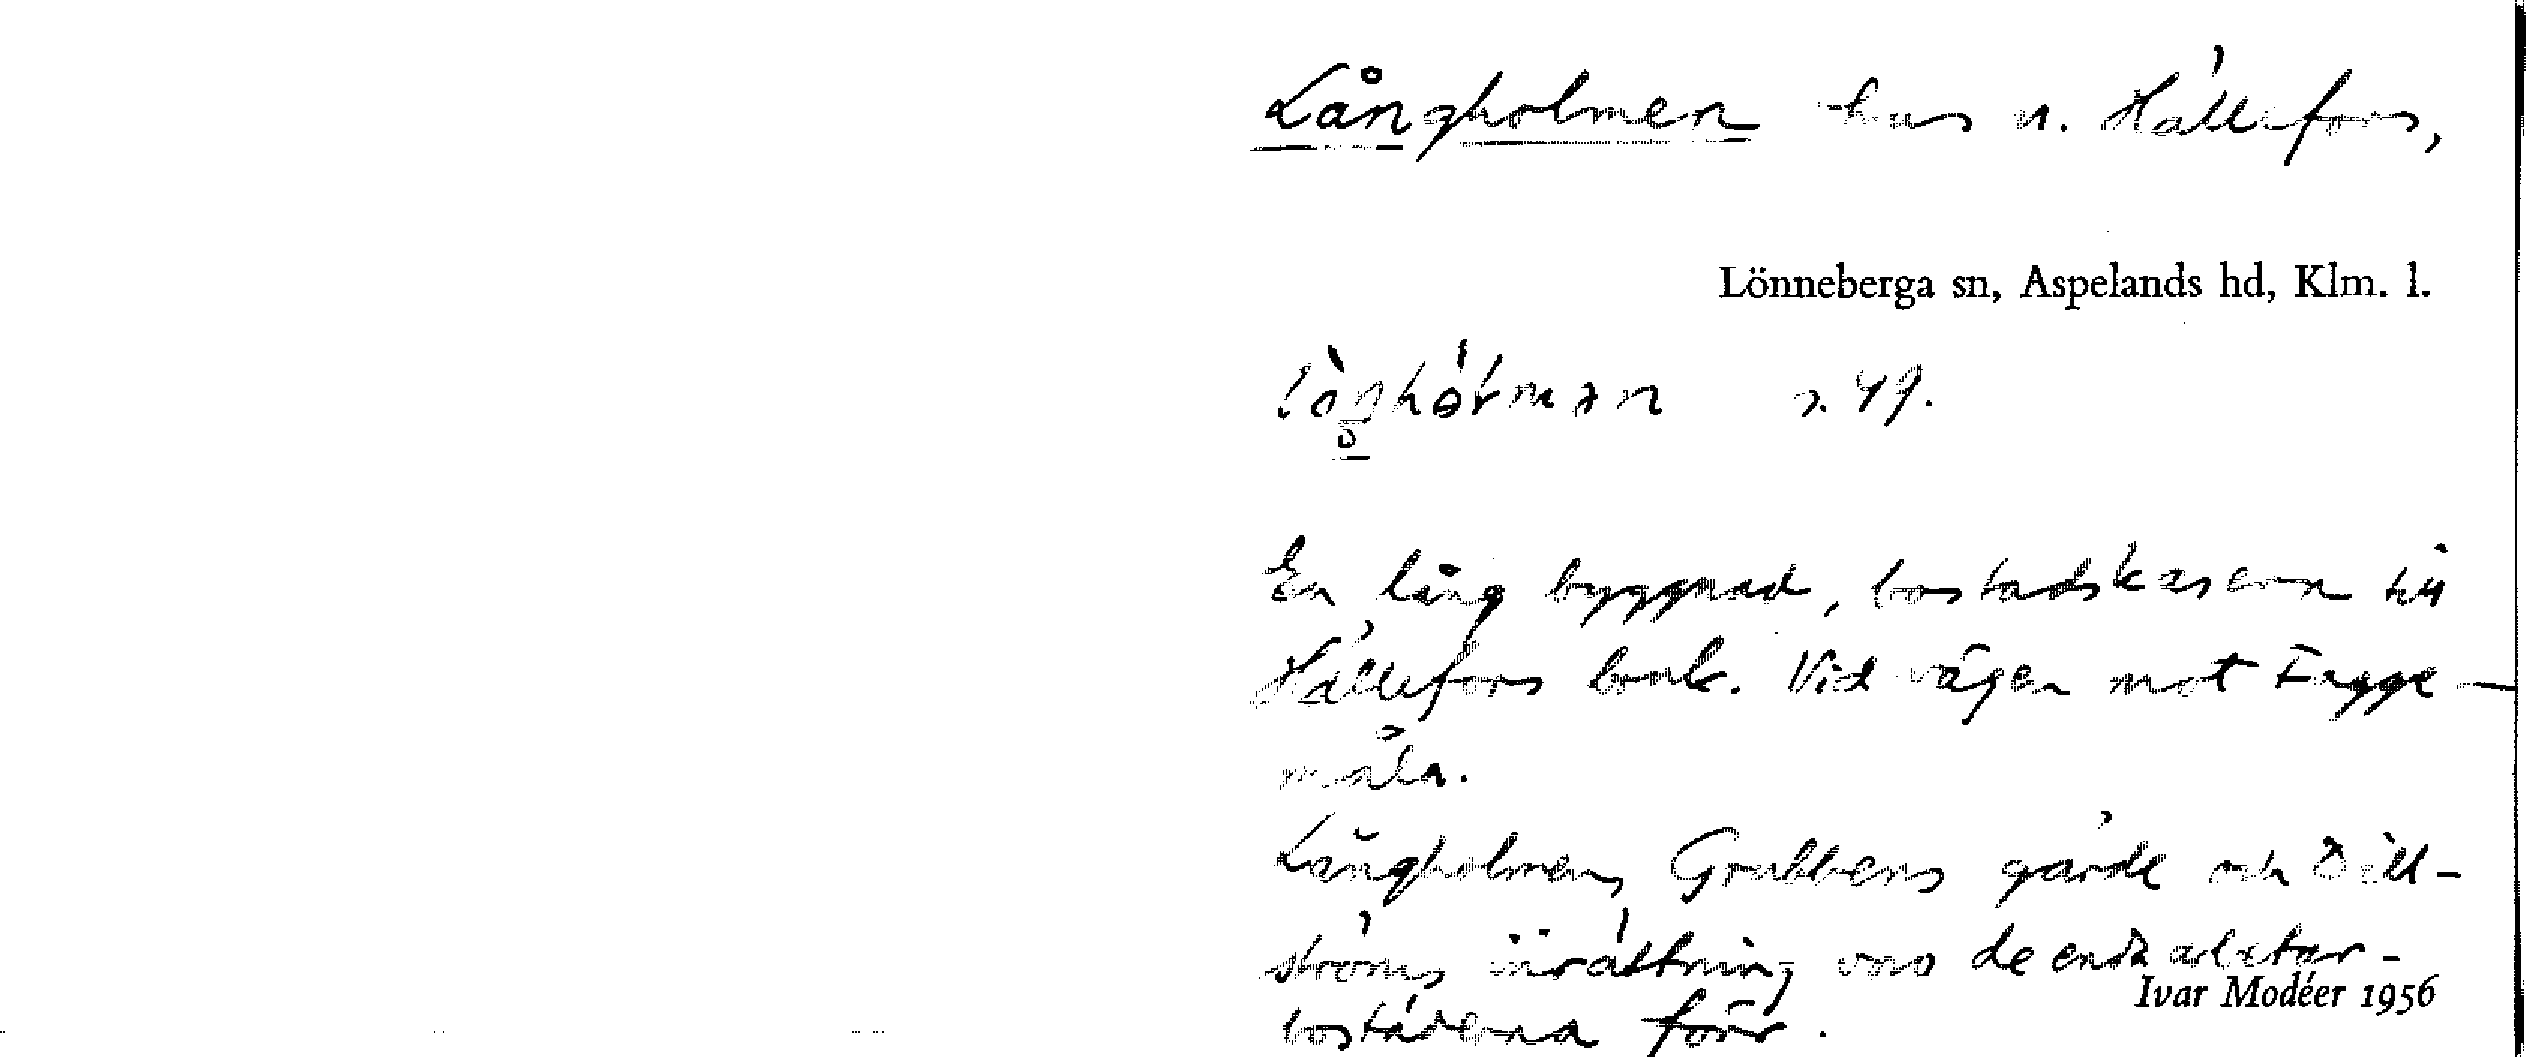 Långholmen hus n. Hällefors,
Lönneberga sn, Aspelands hd, Klm. l.
s. 49.
En lång byggnad, bostadskasern till
Hällefors bruk. Vid vägen mot Fagge-
måla.
Långholmen, Grubbens gärde och Dill-
ströms inrättning voro de enda arbetar-
Ivar Modéer 1956
bostäderna förr.